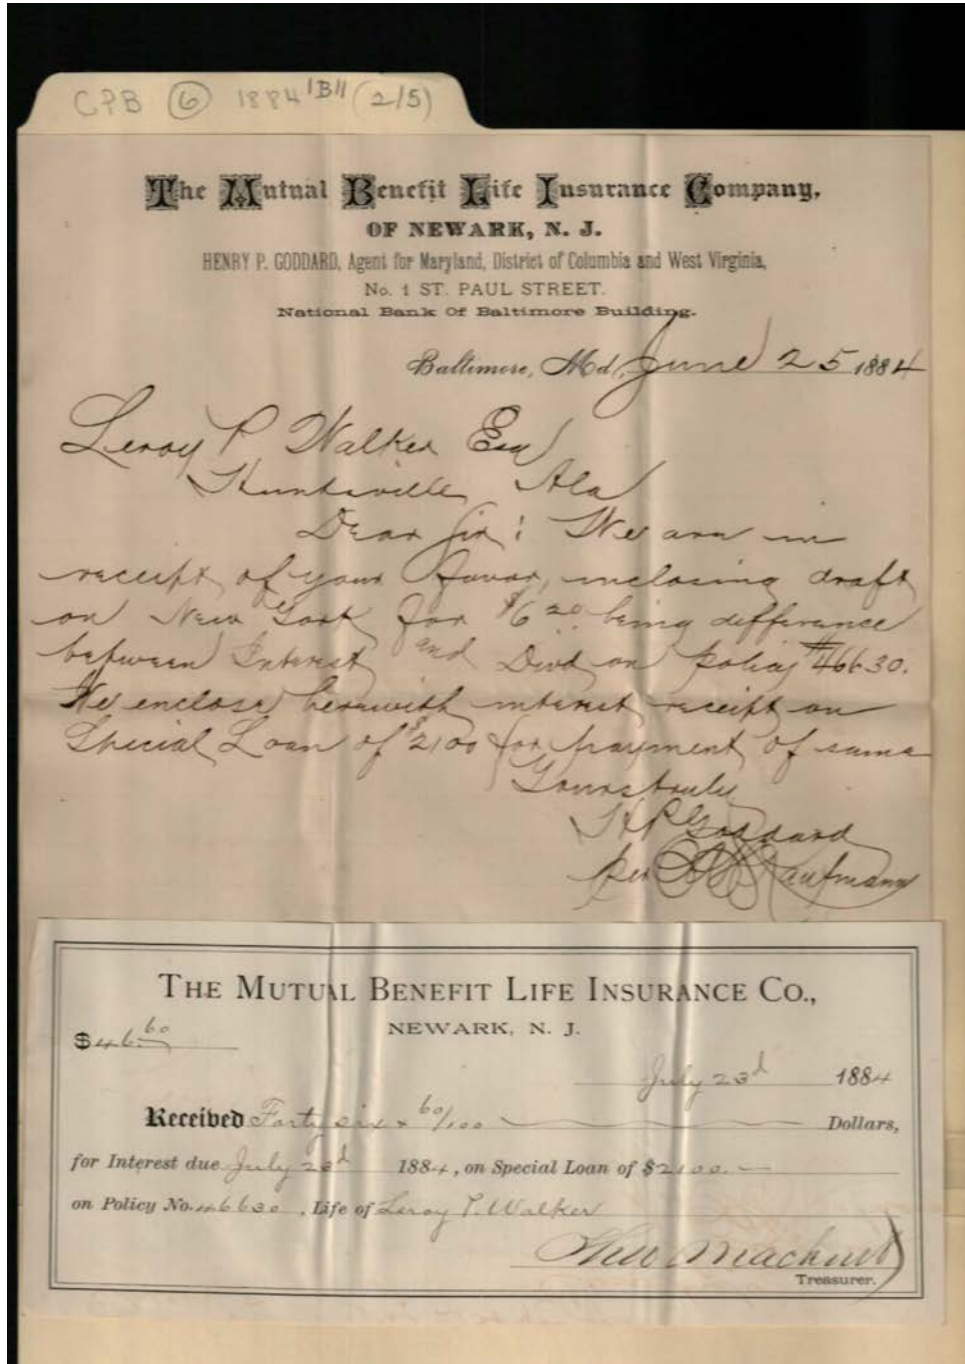 CPB 6 1884 "B" (2/5)
The Mutual Benefit Life Insurance Company,
OF NEWARK, N. J.
HENRY P. GODDARD, Agent for Maryland, District of Columbia and West Virginia,
No. 1 ST. PAUL STREET.
National Bank Of Baltimore Building.
Baltimore, Md., June 25 1884
Leroy P Walker Esq
Huntsville Ala
Dear Sir: We are in
receipt of your favor, inclosing draft
on New York for $6 20 being difference
between Interest and Divd on policy #46630.
We enclose herewith interest receipt on
Special Loan of $2100 for payment of same
Yours truly
H P Goddard
per Kaufmann
THE MUTUAL BENEFIT LIFE INSURANCE CO.,
NEWARK, N. J.
$46 60
July 23d 1884
Received Forty six & 60/100 Dollars,
for Interest due July 23d 1884, on Special Loan of $2100.—
on Policy No. 46630, Life of Leroy P. Walker
Treasurer.